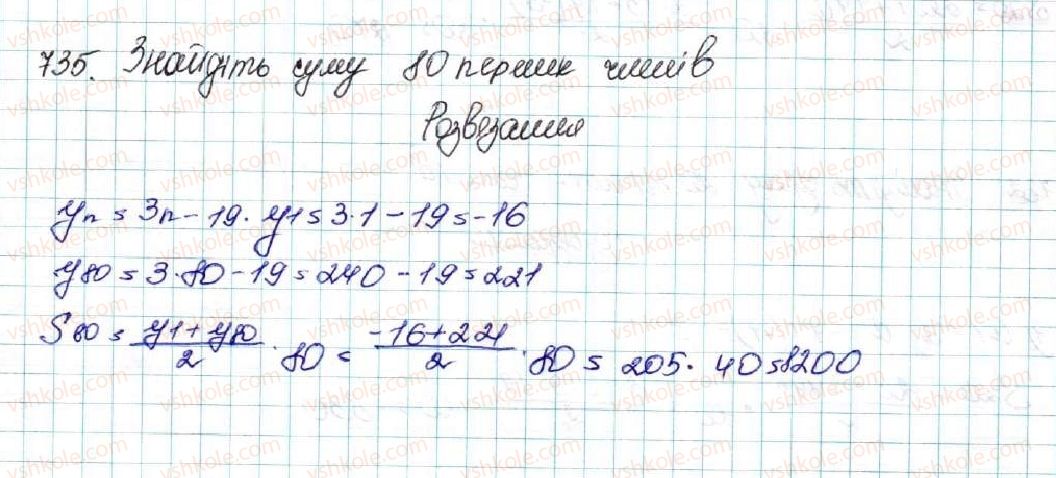 735. Знайдіть суму 80 перших членів
Розвезання
yn = 3n - 19. y1 = 3·1 - 19 = -16
y80 = 3·80 - 19 = 240 - 19 = 221
S80 = (y1 + y80)/2 · 80 = (-16 + 221)/2 · 80 = 205 · 40 = 8200